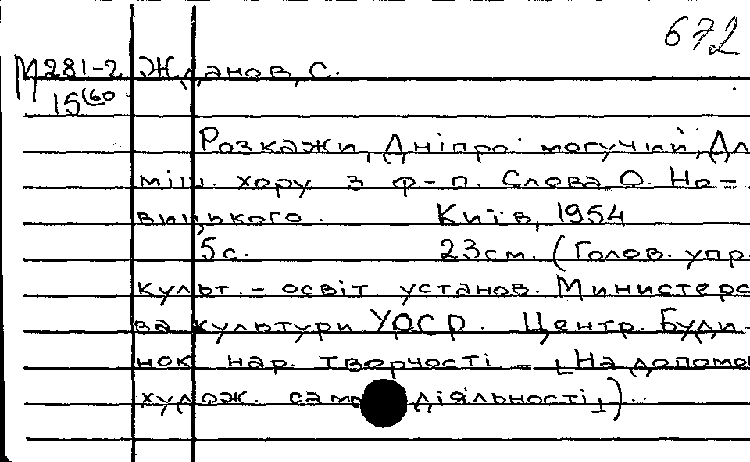 672
М281-2 Жданов, С.
15(60
Розкажи, Дніпро могучий, Дл
міш. хору з ф-п. Слова О. Но-
вицького. Київ, 1954
5с. 23см. (Голов. упр.
культ. - освіт установ. Министерс
ва культури УРСР. Центр. Буди-
нок нар. творчості - [На допомо
худож. самодіяльності])..